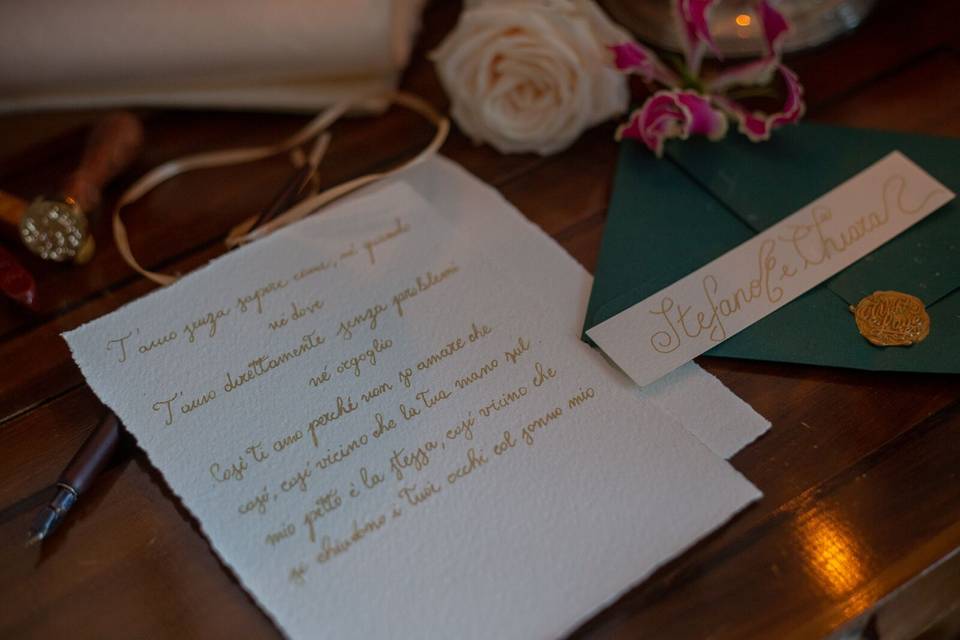 T'amo senza sapere come, né quando
né dove
T'amo direttamente senza problemi
né orgoglio
Così ti amo perché non so amare che
così, così vicino che la tua mano sul
mio petto è la stessa, così vicino che
si chiudono i tuoi occhi col sonno mio
Stefano e Chiara